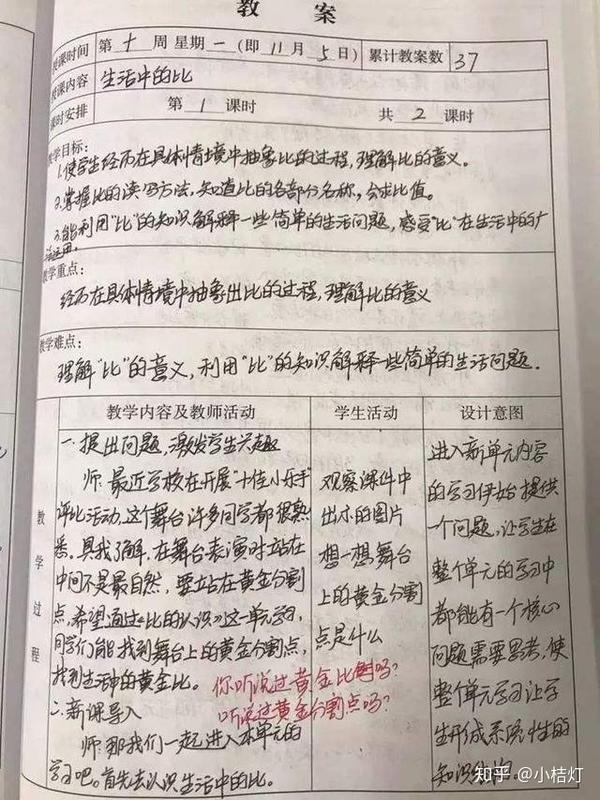 教案
授课时间 第 十 周 星期 一 (即 11 月 5 日) 累计教案数 37
授课内容 生活中的比
课时安排 第 1 课时 共 2 课时
教学目标:
1.使学生经历在具体情境中抽象比的过程,理解比的意义。
2.掌握比的读写方法,知道比的各部分名称,会求比值。
3.能利用"比"的知识解释一些简单的生活问题,感受"比"在生活中的广
泛运用。
教学重点:
经历在具体情境中抽象出比的过程,理解比的意义
教学难点:
理解"比"的意义,利用"比"的知识解释一些简单的生活问题.
教学过程
教学内容及教师活动
一、提出问题,激发学生兴趣
师:最近学校在开展"十佳小乐手"
评比活动.这个舞台许多同学都很熟
悉.具我了解.在舞台表演时站在
中间不是最自然,要站在黄金分割
点,希望通过《比的认识》这一单元学习,
同学们能找到舞台上的黄金分割点,
找到生活中的黄金比。你听说过黄金比吗?
二、新课导入 听说过黄金分割点吗?
师:那我们一起进入本单元的
学习吧。首先去认识生活中的比.
学生活动
观察课件中
出示的图片
想一想舞台
上的黄金分割
点是什么
设计意图
进入新单元内容
的学习伊始提供
一个问题,让学生在
整个单元的学习中
都能有一个核心
问题需要思考,使
整个单元学习让学
生形成系统性的
知识结构。
知乎 @小桔灯